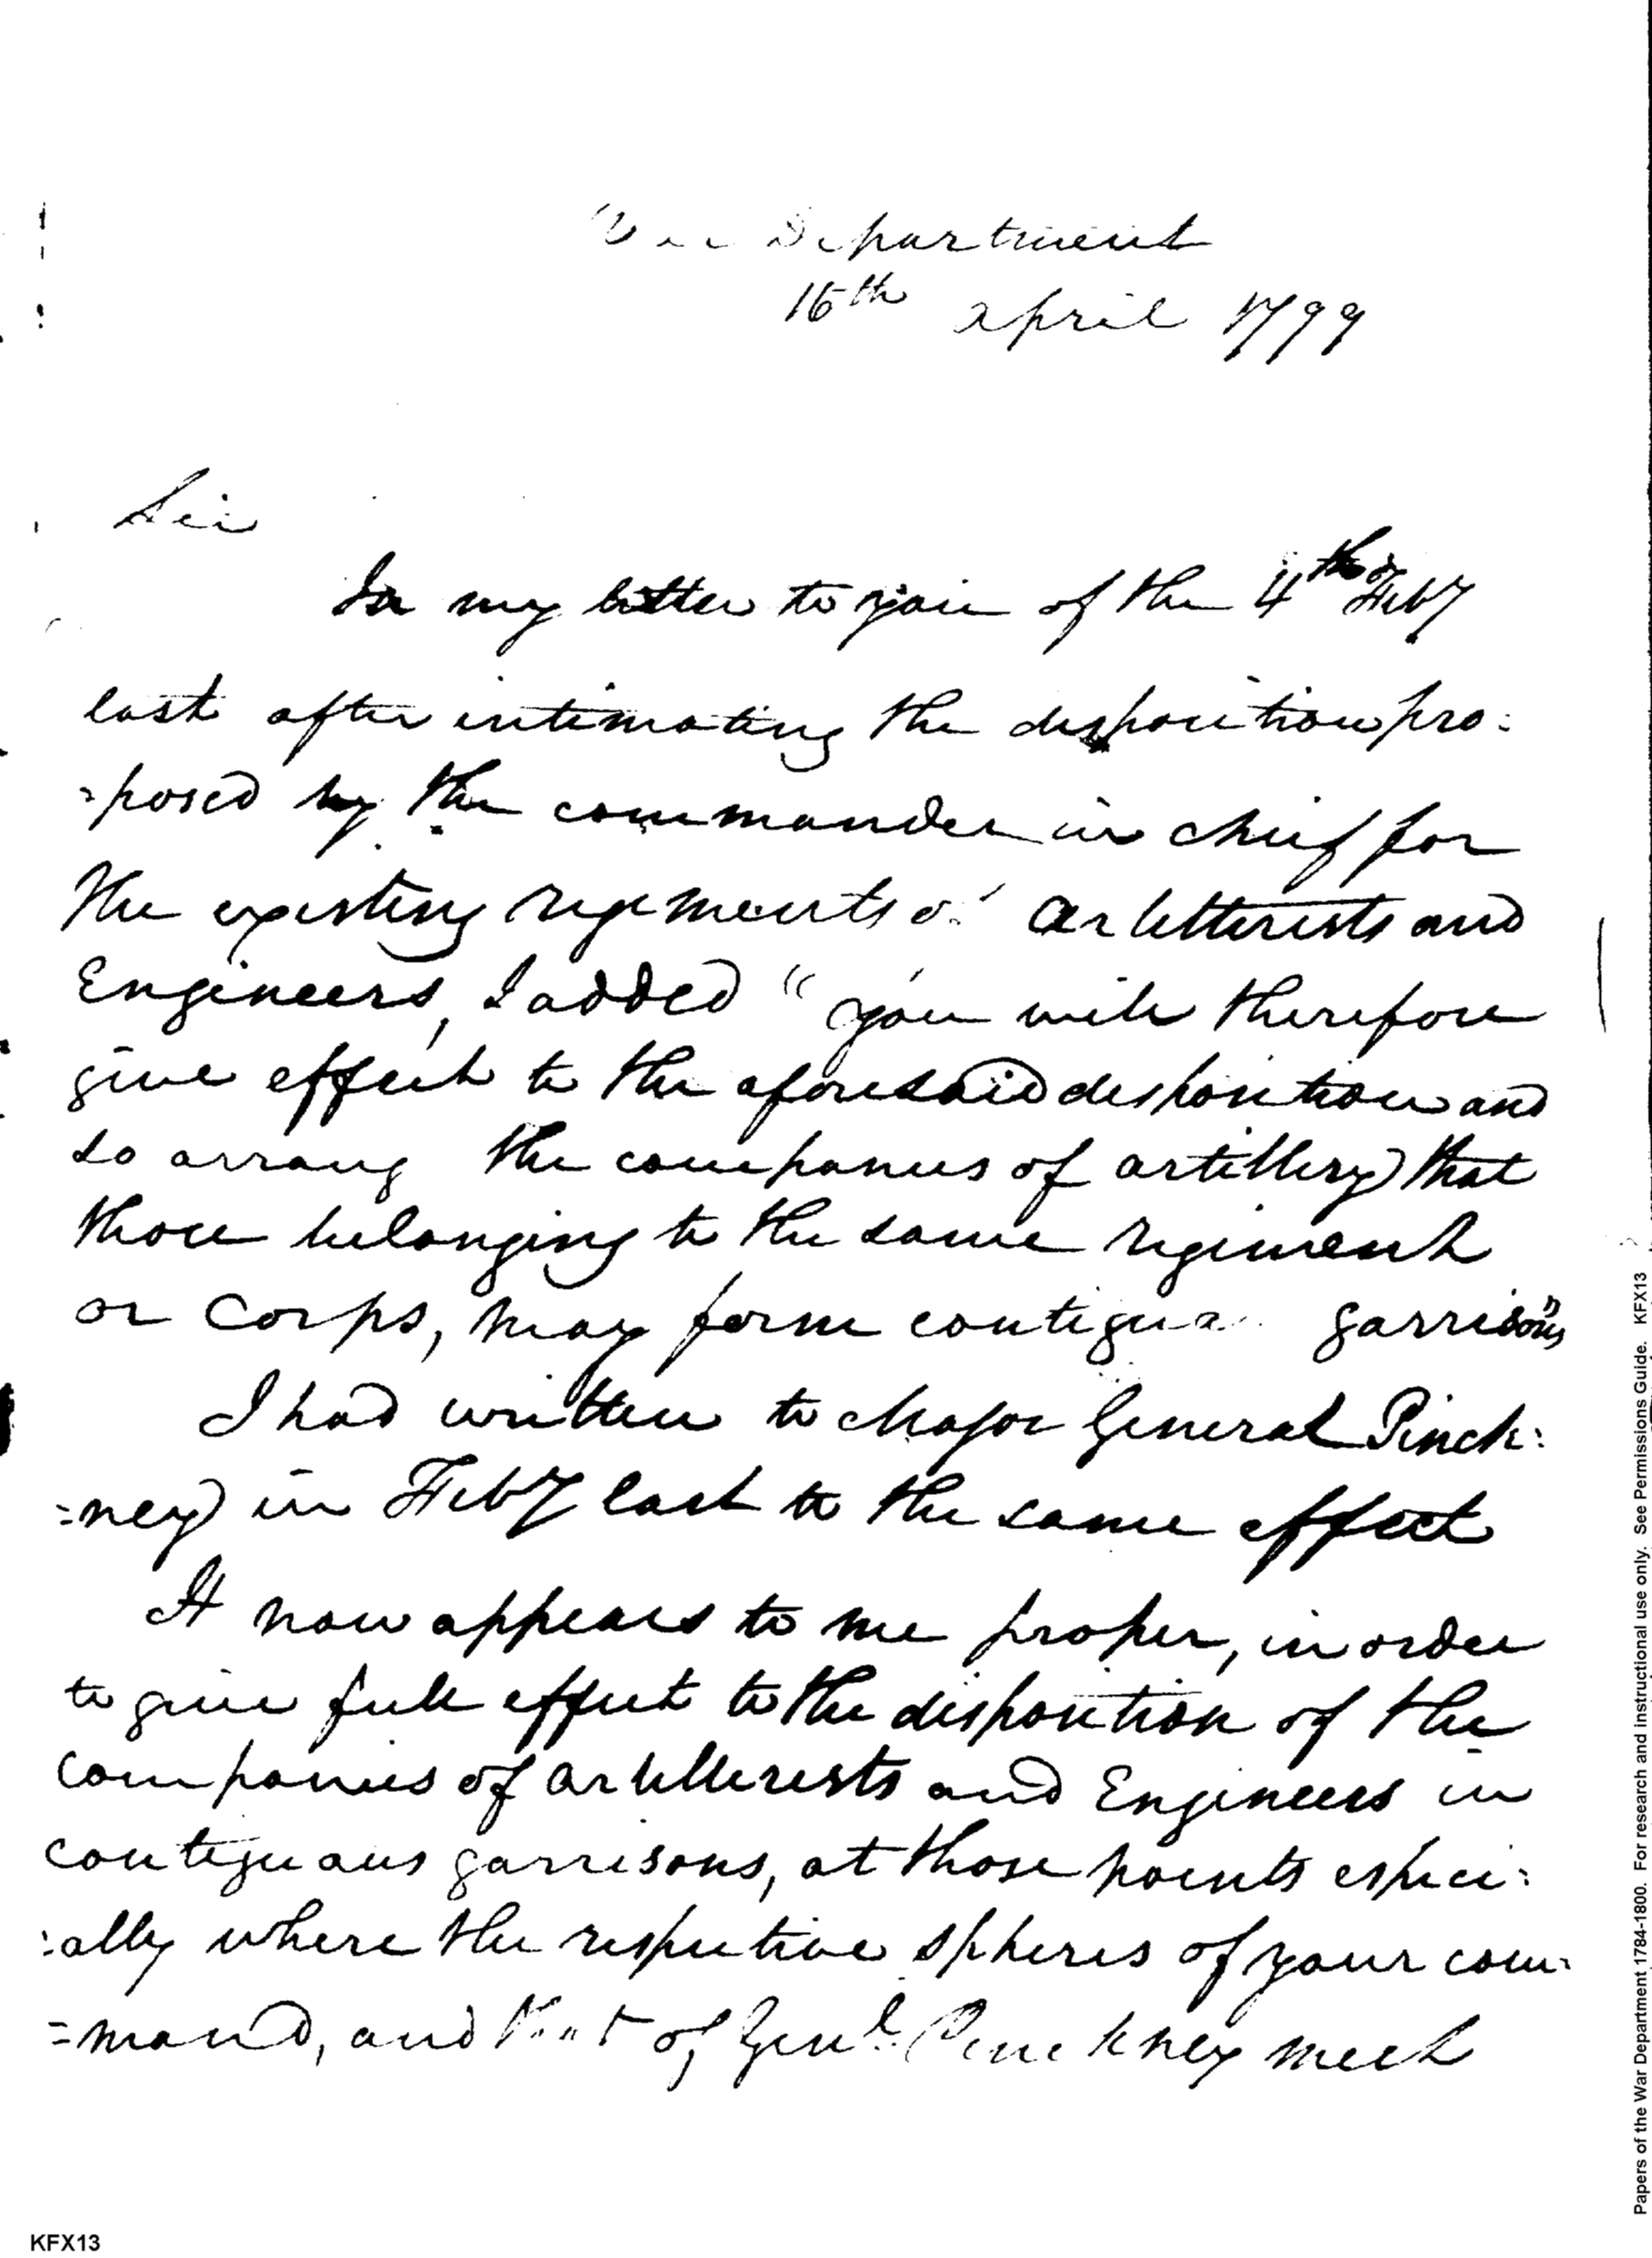 War Department
16th April 1799
Sir
In my letter to you of the 4th Feby
last after intimating the disposition pro=
=posed by the commander in chief for
the existing regiments of Artillerists and
Engineers, I added "you will therefore
give effect to the aforesaid disposition and
so arrang the companies of artillery that
those belonging to the same regiment
or Corps, may form contiguous garrisons"
I had written to Major General Pinck=
=ney in Feby last to the same effect
It now appears to me proper, in order
to give full effect to the disposition of the
companies of artillerists and Engineers in
contiguous garrisons, at those points especi=
=ally where the respective spheres of your com=
=mand, and that of Genl. Pinckney meet
KFX13
Papers of the War Department 1784-1800. For research and instructional use only. See Permissions Guide. KFX13